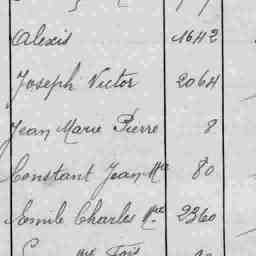 Alexis 1642
Joseph Victor 2064
Jean Marie Pierre 8
Constant Jean Mie 80
Emile Charles Mie 2360